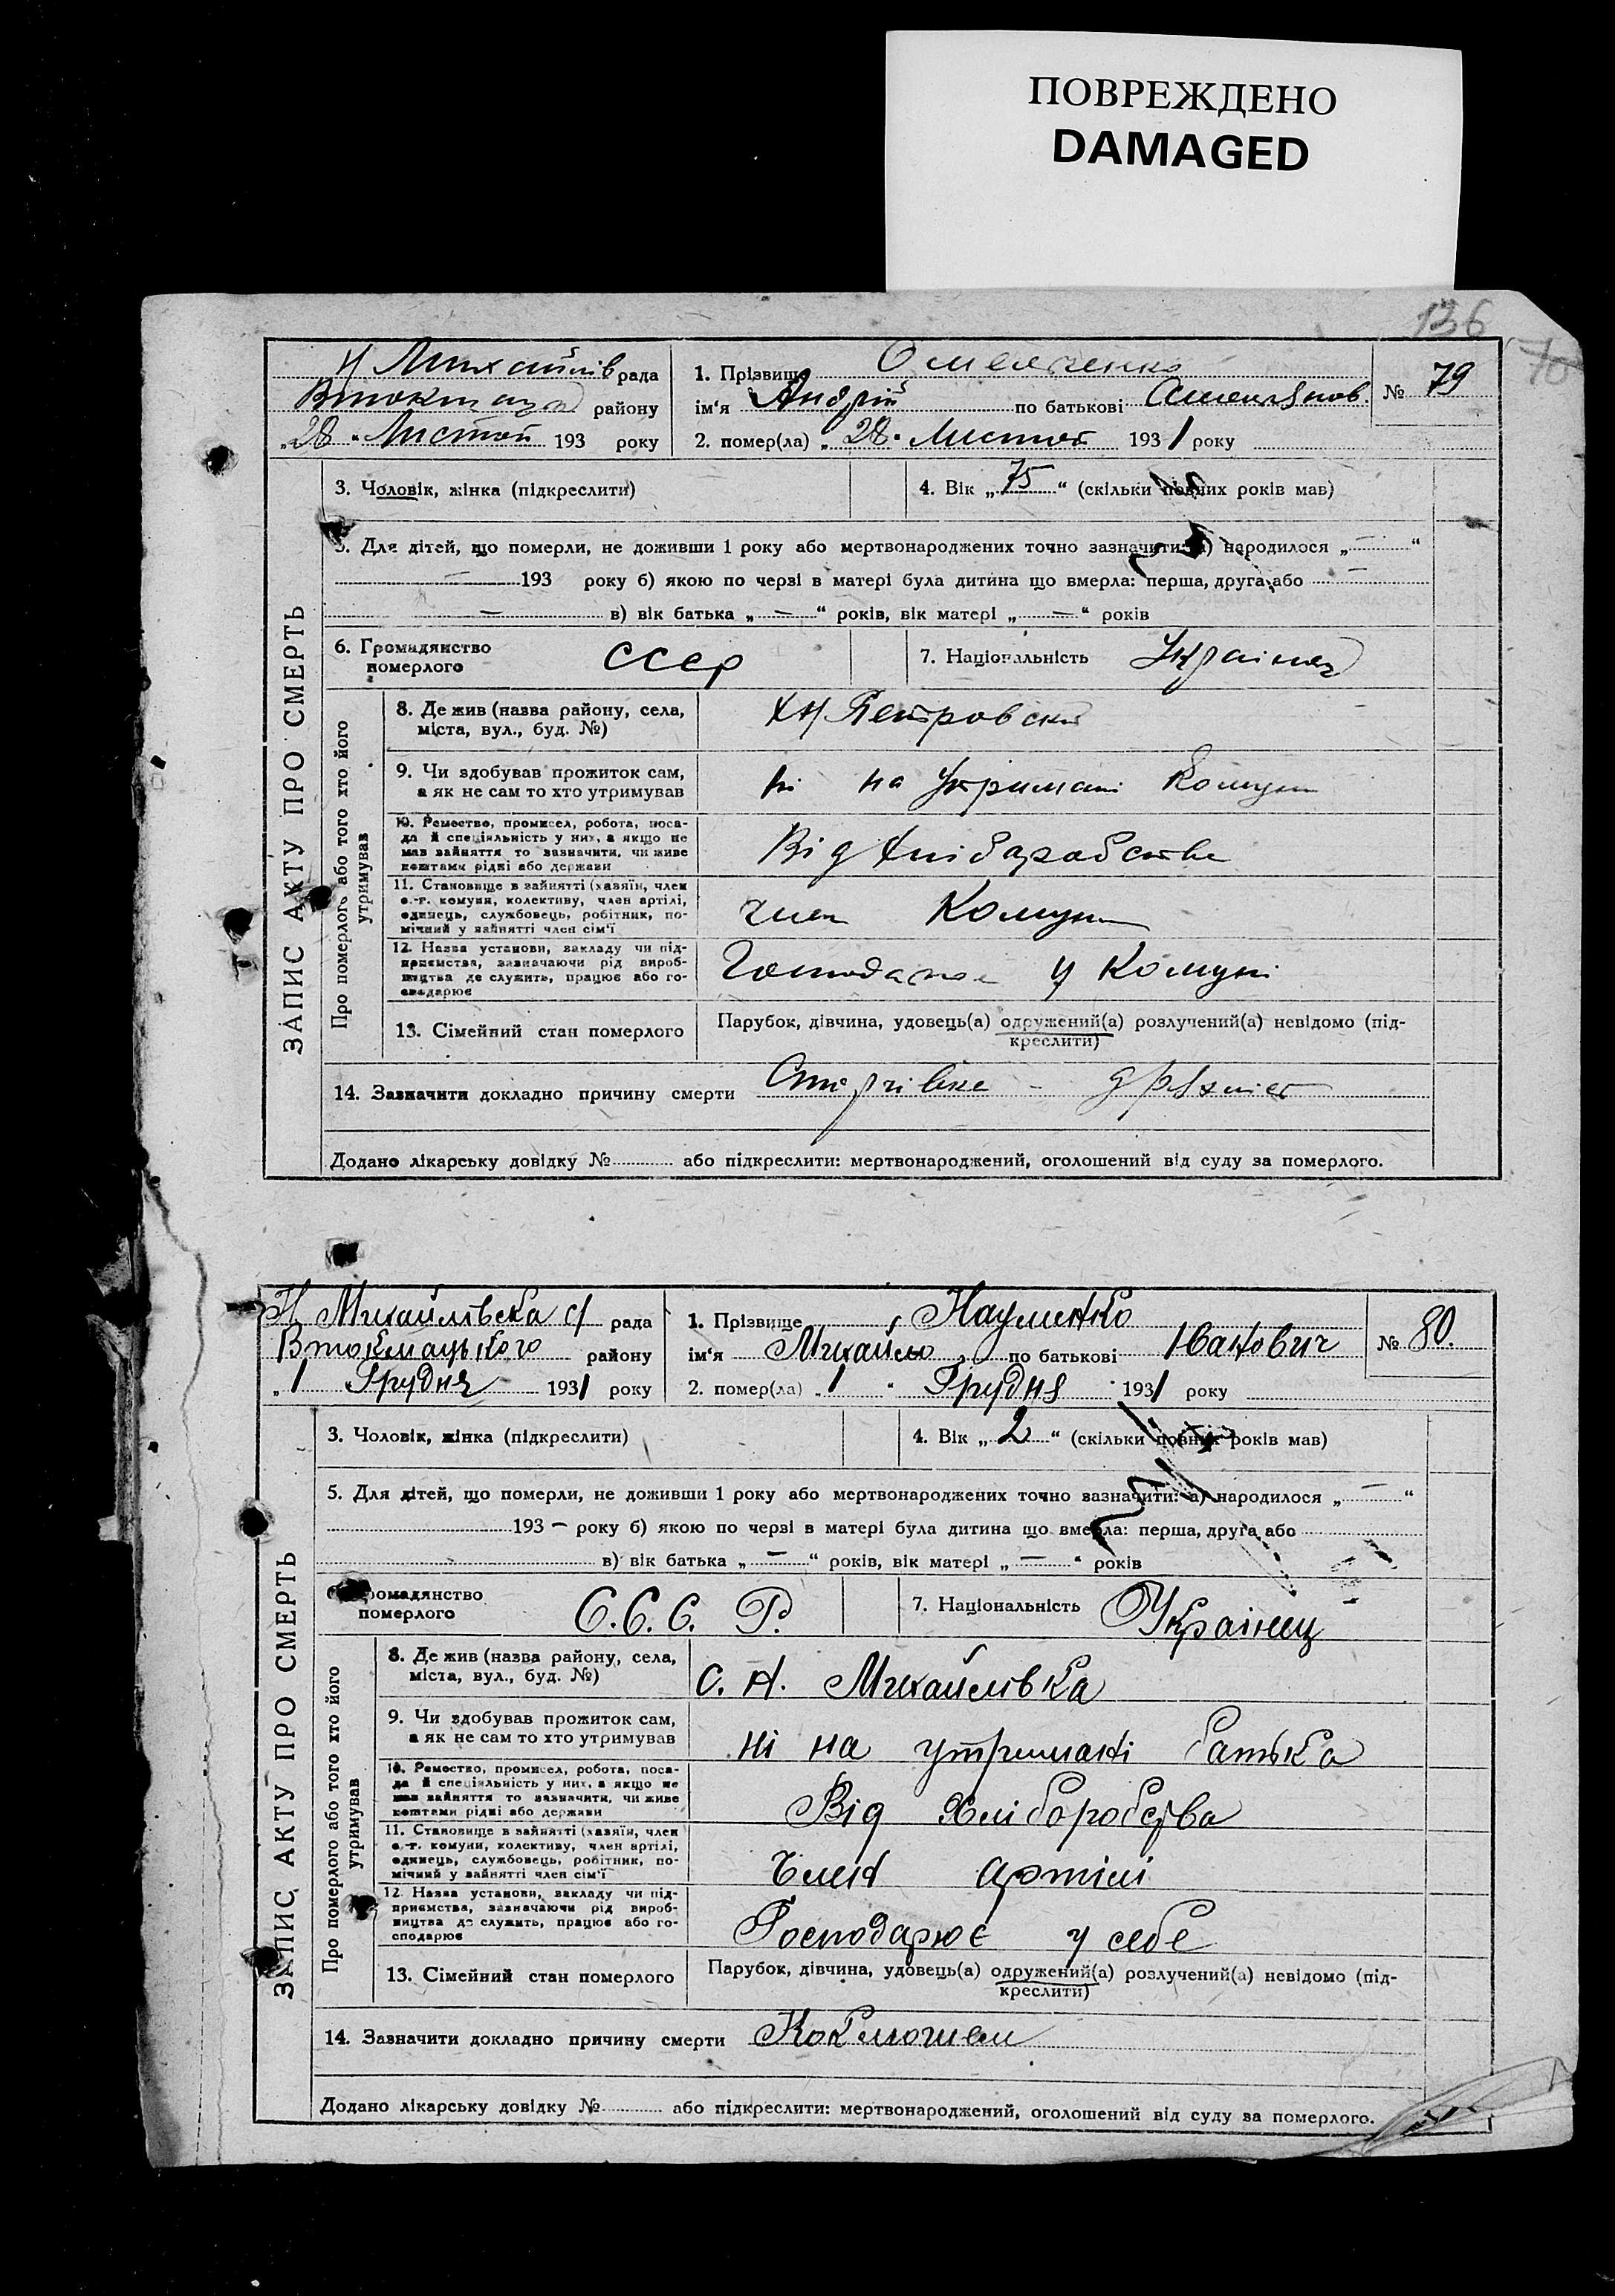 ПОВРЕЖДЕНО
DAMAGED
136
70
Н Михайлів рада
району
„28“ Листоп 193 року
1. Прізвище Омельченко
ім‘я Андрій по батькові
2. помер(ла) „28“ Листоп 1931 року
№ 79
ЗАПИС АКТУ ПРО СМЕРТЬ
3. Чоловік, жінка (підкреслити)
4. Вік „75“ (скільки повних років мав)
5. Для дітей, що померли, не доживши 1 року або мертвонароджених точно зазначити: а) народилося „—“
— 193 року б) якою по черзі в матері була дитина що вмерла: перша, друга або —
— в) вік батька „—“ років, вік матері „—“ років
6. Громадянство
померлого
ссср
7. Національність Українец
Про померлого або того хто його
утримував
8. Де жив (назва району, села,
міста, вул., буд. №)
Петровский
9. Чи здобував прожиток сам,
а як не сам то хто утримував
ні на утримані Комуни
10. Ремество, промисел, робота, поса-
да й спеціяльність у них, а якщо не
мав зайняття то зазначити, чи живе
коштами рідні або держави
Від хліборобства
11. Становище в зайнятті (хазяїн, член
с.-г. комуни, колективу, член артілі,
одинець, службовець, робітник, по-
мічний у зайнятті член сім‘ї
член Комуни
12. Назва установи, закладу чи під-
приємства, зазначаючи рід вироб-
ництва де служить, працює або го-
сподарює
у Комуні
13. Сімейний стан померлого
Парубок, дівчина, удовець(а) одружений(а) розлучений(а) невідомо (під-
креслити)
14. Зазначити докладно причину смерти
Додано лікарську довідку № або підкреслити: мертвонароджений, оголошений від суду за померлого.
Н Михайлівска с/ рада
Втокмацького району
„1 Грудня 1931 року
1. Прізвище Науменко
ім‘я Михайло по батькові Іванович
2. помер(ла) „1“ Грудня 1931 року
№ 80.
ЗАПИС АКТУ ПРО СМЕРТЬ
3. Чоловік, жінка (підкреслити)
4. Вік „2“ (скільки повних років мав)
5. Для дітей, що померли, не доживши 1 року або мертвонароджених точно зазначити: а) народилося „—“
193 — року б) якою по черзі в матері була дитина що вмерла: перша, друга або
в) вік батька „—“ років, вік матері „—“ років
6. Громадянство
померлого
С.С.С. Р.
7. Національність Українец
Про померлого або того хто його
утримував
8. Де жив (назва району, села,
міста, вул., буд. №)
с. Н. Михайлівка
9. Чи здобував прожиток сам,
а як не сам то хто утримував
ні на утримані батька
10. Ремество, промисел, робота, поса-
да й спеціяльність у них, а якщо не
мав зайняття то зазначити, чи живе
коштами рідні або держави
Від хліборобства
11. Становище в зайнятті (хазяїн, член
с.-г. комуни, колективу, член артілі,
одинець, службовець, робітник, по-
мічний у зайнятті член сім‘ї
Член артілі
12. Назва установи, закладу чи під-
приємства, зазначаючи рід вироб-
ництва де служить, працює або го-
сподарює
Господарює у себе
13. Сімейний стан померлого
Парубок, дівчина, удовець(а) одружений(а) розлучений(а) невідомо (під-
креслити)
14. Зазначити докладно причину смерти Коклюшем
Додано лікарську довідку № або підкреслити: мертвонароджений, оголошений від суду за померлого.